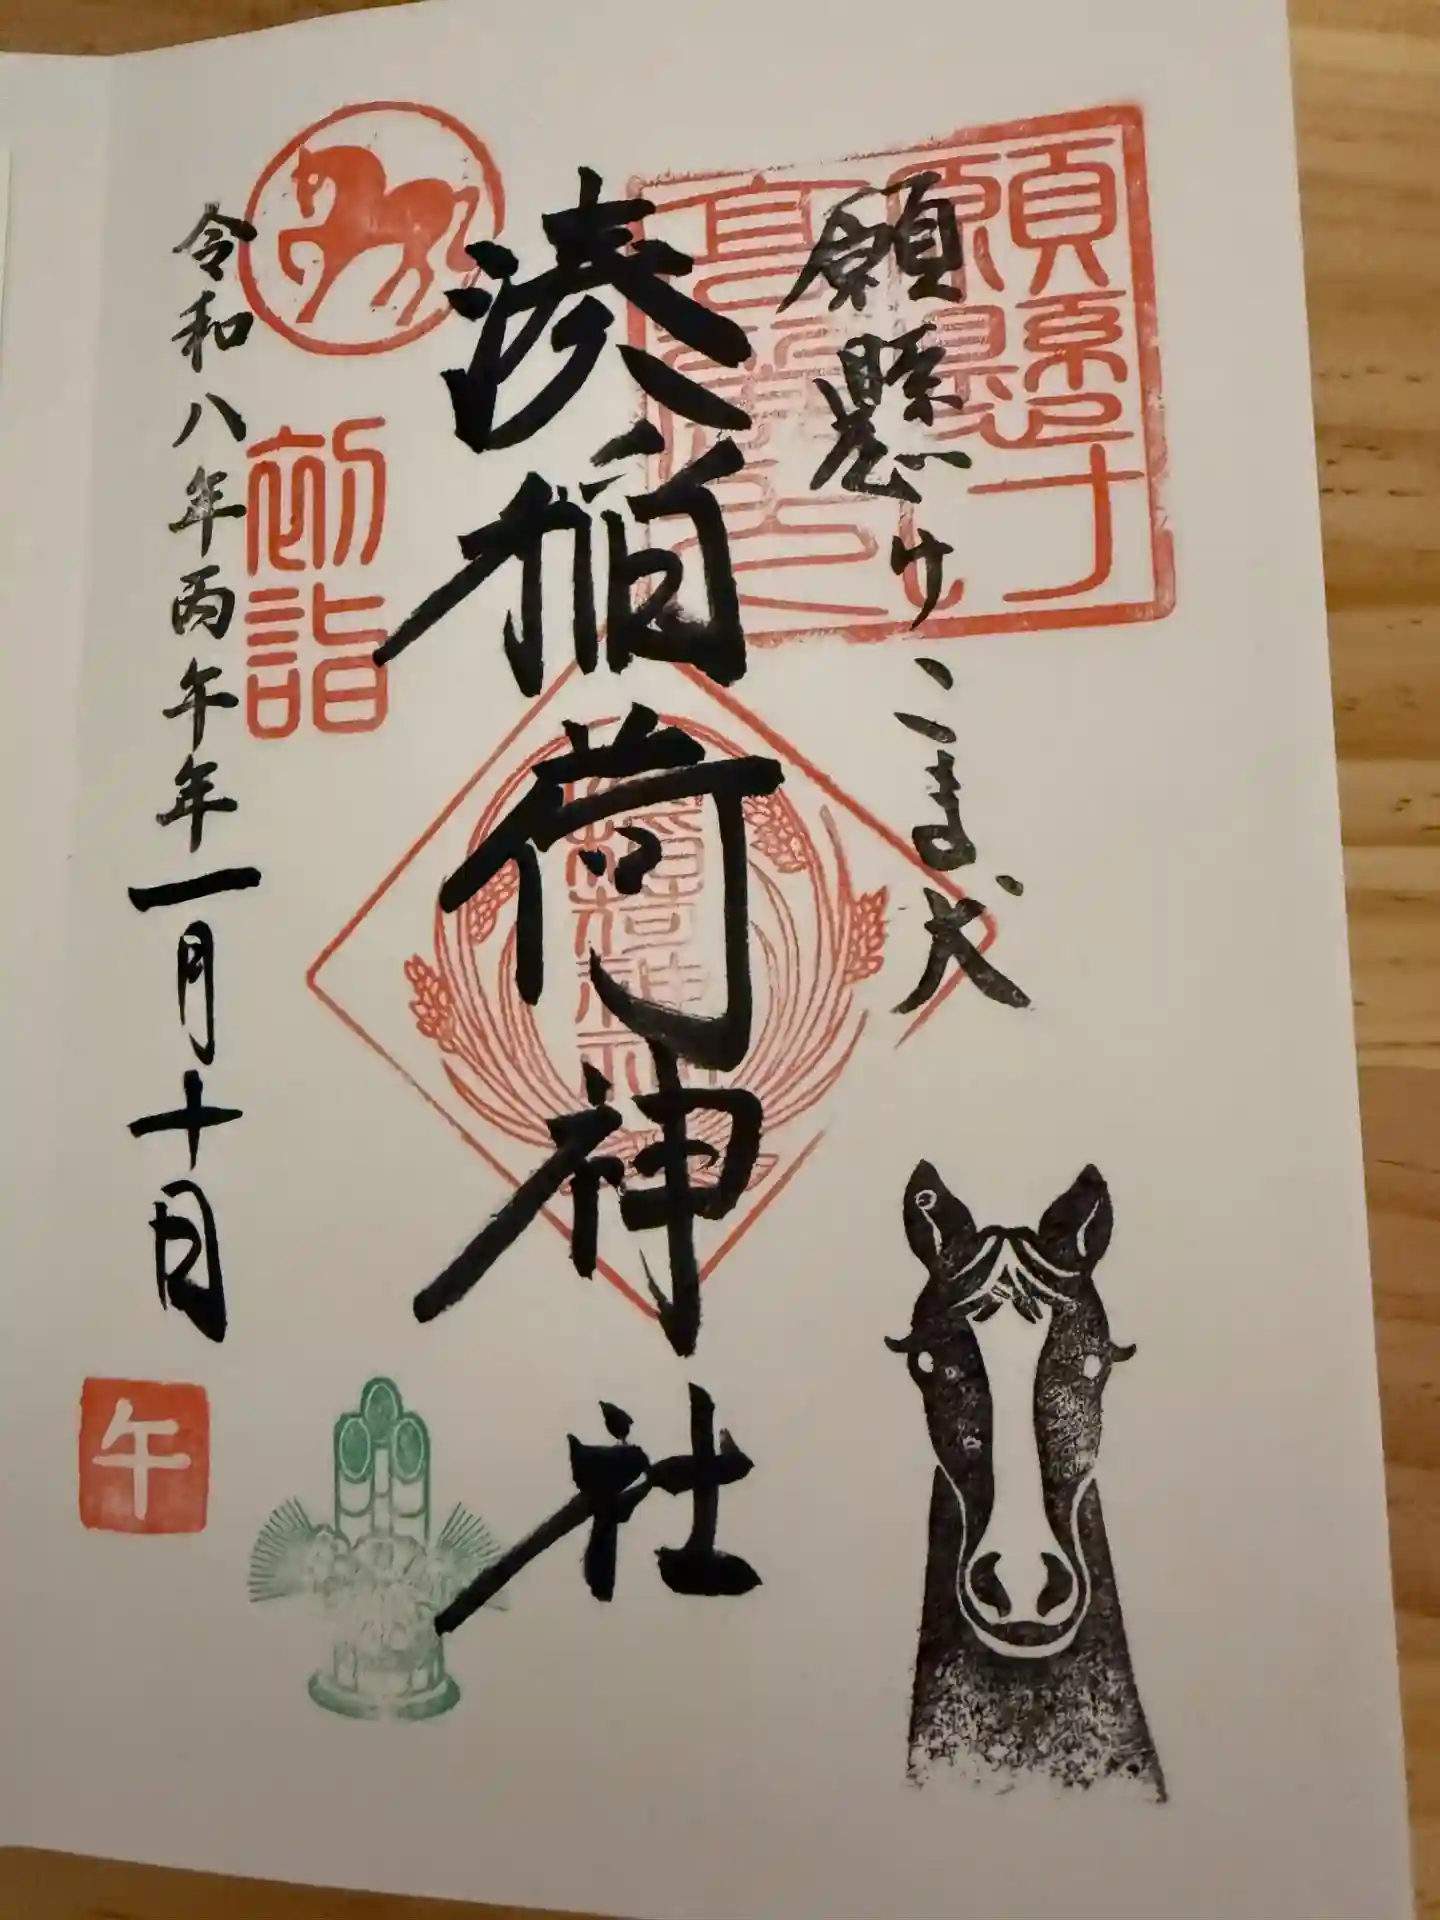 願懸け
こま犬
湊稲荷神社
令和八年丙午年一月十日
初詣
午